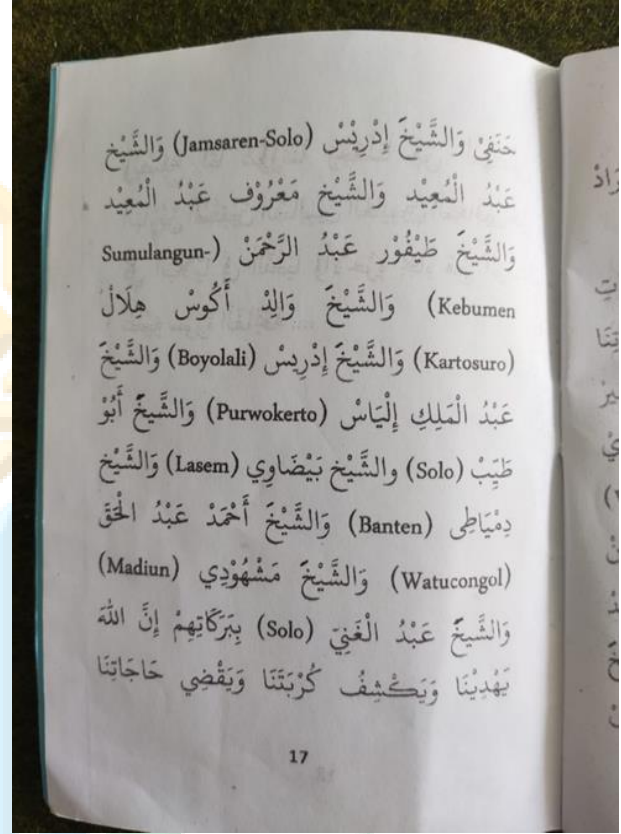 حَنَفِيْ وَالشَّيْخَ إِدْرِيْسْ (Jamsaren-Solo) وَالشَّيْخ
عَبْدُ الْمُعِيْد وَالشَّيْخ مَعْرُوْف عَبْدُ الْمُعِيْد
وَالشَّيْخَ طَيْفُوْر عَبْدُ الرَّحْمَنْ (Sumulangun-
Kebumen) وَالشَّيْخَ وَالِدْ أَكُوسْ هِلَالْ
(Kartosuro) وَالشَّيْخَ إِدْرِيسْ (Boyolali) وَالشَّيْخَ
عَبْدُ الْمَلِكِ إِلْيَاسْ (Purwokerto) وَالشَّيْخَ أَبُوْ
طَيِّبْ (Solo) والشَّيْخ بَيْضَاوِي (Lasem) وَالشَّيْخ
دِمْيَاطِى (Banten) وَالشَّيْخَ أَحْمَدْ عَبْدُ الْحَقّ
(Watucongol) وَالشَّيْخَ مَشْهُوْدِي (Madiun)
وَالشَّيْخَ عَبْدُ الْغَنِيّ (Solo) بِبَرَكَاتِهِمْ إِنَّ اللهَ
يَهْدِيْنَا وَيَكْشِفُ كُرْبَتَنَا وَيَقْضِي حَاجَاتِنَا
17